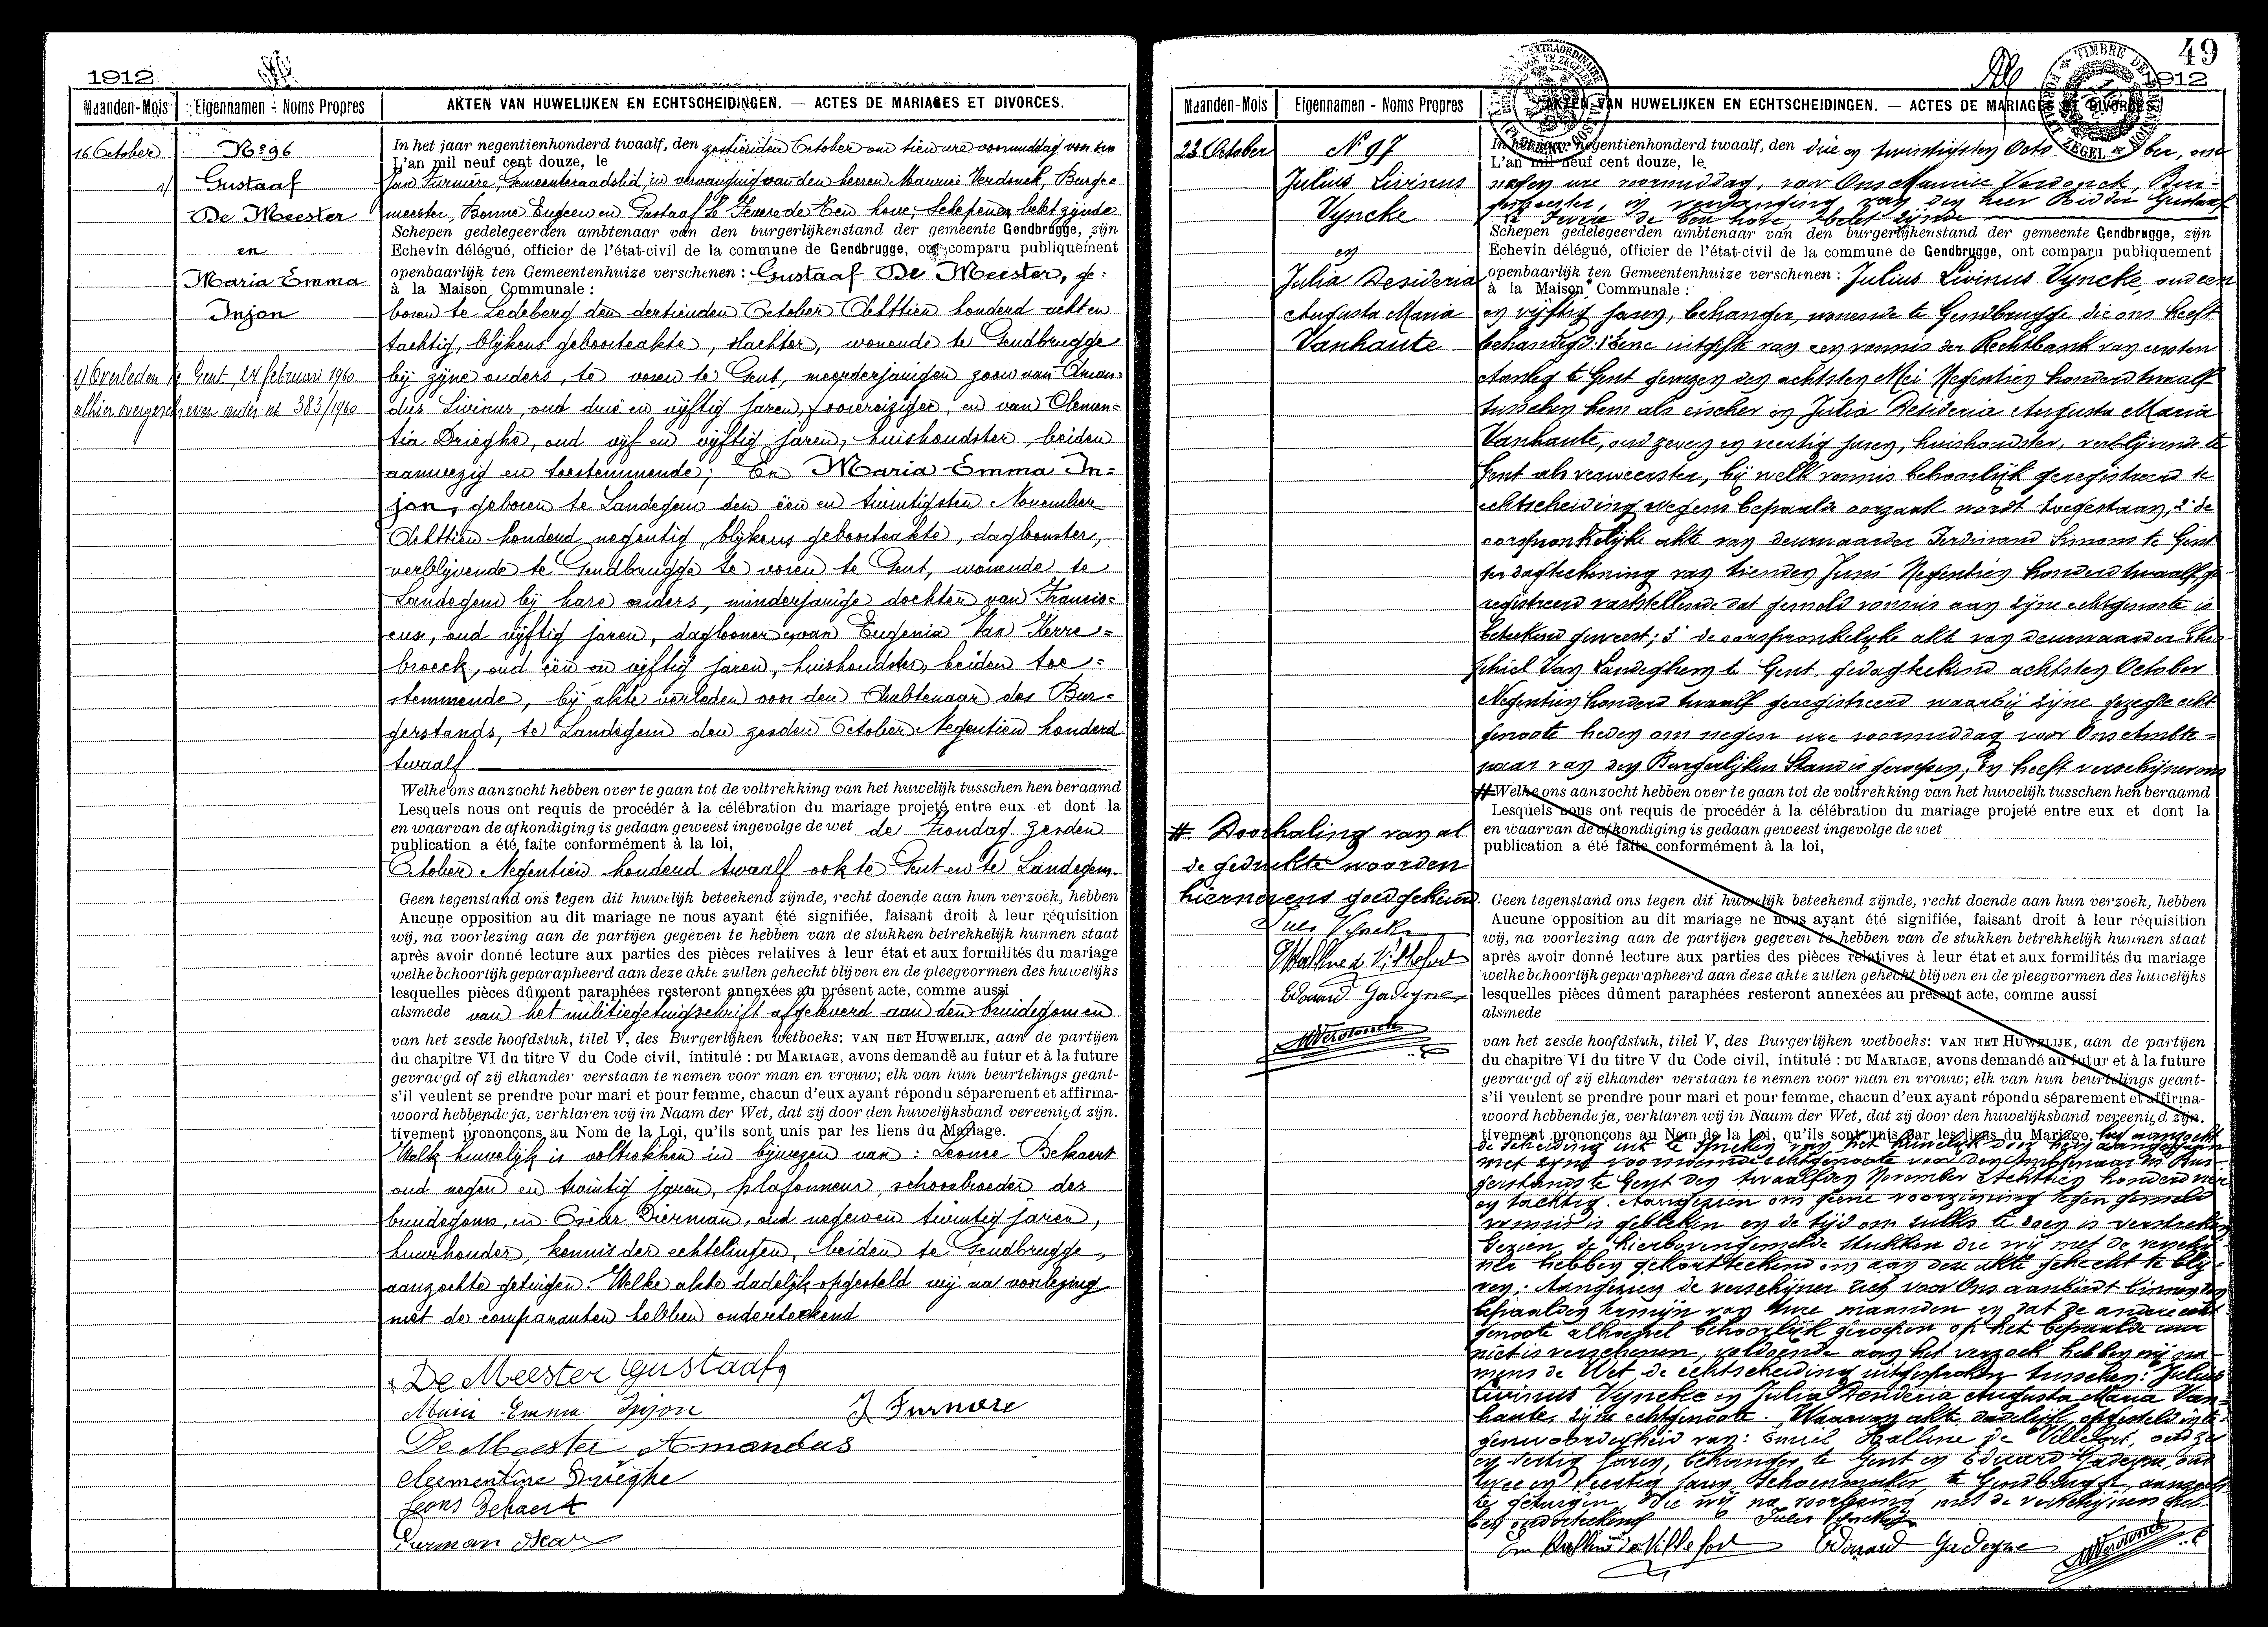 1912
Maanden-Mois
Eigennamen - Noms Propres
AKTEN VAN HUWELIJKEN EN ECHTSCHEIDINGEN. — ACTES DE MARIAGES ET DIVORCES.
16 October
Nº 96
1/ Gustaaf
De Meester
en
Maria Emma
Injon
1/ Overleden te Gent, 24 februari 1960.
alhier overgeschreven onder nr 383/1960
In het jaar negentienhonderd twaalf, den zestienden October om tien ure voormiddag voor ons
L'an mil neuf cent douze, le
Jan Furnière, Gemeenteraadslid, in vervanging van den heeren Maurice Verdonck, Burge=
meester, Bonne Eugeen en Gustaaf Le Fevere de Ten hove, Schepenen belet zijnde
Schepen gedelegeerden ambtenaar van den burgerlijkenstand der gemeente Gendbrugge, zijn
Echevin délégué, officier de l'état-civil de la commune de Gendbrugge, ont comparu publiquement
openbaarlijk ten Gemeentenhuize verschenen : Gustaaf De Meester, ge=
à la Maison Communale :
boren te Ledeberg den dertienden October Achttien honderd acht en
tachtig, blijkens geboorteakte, slachter, wonende te Gendbrugge
bij zijne ouders, te voren te Gent, meerderjarigen zoon van Aman=
dus Livinus, oud drie en vijftig jaren, voerreiziger, en van Clemen=
tia Drieghe, oud vijf en vijftig jaren, huishoudster, beiden
aanwezig en toestemmende; En Maria Emma In=
jon, geboren te Landegem den een en twintigsten November
Achttien honderd negentig, blijkens geboorteakte, dagloonster,
verblijvende te Gendbrugge te voren te Gent, wonende te
Landegem bij hare ouders, minderjarige dochter van Francis=
cus, oud vijftig jaren, daglooner en van Eugenia Van Kerre=
broeck, oud een en vijftig jaren, huishoudster, beiden toe=
stemmende, bij akte verleden voor den Ambtenaar des Bur=
gerstands, te Landegem den zesden October Negentien honderd
twaalf.
Welke ons aanzocht hebben over te gaan tot de voltrekking van het huwelijk tusschen hen beraamd
Lesquels nous ont requis de procédér à la célébration du mariage projeté entre eux et dont la
en waarvan de afkondiging is gedaan geweest ingevolge de wet de Zondag zesden
publication a été faite conformément à la loi,
October Negentien honderd twaalf ook te Gent en te Landegem.
Geen tegenstand ons tegen dit huwelijk beteekend zijnde, recht doende aan hun verzoek, hebben
Aucune opposition au dit mariage ne nous ayant été signifiée, faisant droit à leur réquisition
wij, na voorlezing aan de partijen gegeven te hebben van de stukken betrekkelijk hunnen staat
après avoir donné lecture aux parties des pièces relatives à leur état et aux formilités du mariage
welke behoorlijk geparapheerd aan deze akte zullen gehecht blijven en de pleegvormen des huwelijks
lesquelles pièces dûment paraphées resteront annexées au présent acte, comme aussi
alsmede van het militiegetuigschrift afgeleverd aan den bruidegom en
van het zesde hoofdstuk, tilel V, des Burgerlijken wetboeks: VAN HET HUWELIJK, aan de partijen
du chapitre VI du titre V du Code civil, intitulé : DU MARIAGE, avons demandé au futur et à la future
gevraegd of zij elkander verstaan te nemen voor man en vrouw; elk van hun beurtelings geant-
s'il veulent se prendre pour mari et pour femme, chacun d'eux ayant répondu séparement et affirma-
woord hebbende ja, verklaren wij in Naam der Wet, dat zij door den huwelijksband vereenigd zijn.
tivement prononçons au Nom de la Loi, qu'ils sont unis par les liens du Mariage.
Welk huwelijk is voltrokken in bijwezen van : Leonce Bekaert
oud negen en twintig jaren, plafonneur, schoonbroeder des
bruidegoms, en Oscar Dierman, oud negen en twintig jaren,
huurhouder, kennis der echtelingen, beiden te Gendbrugge,
aanzochte getuigen. Welke akte dadelijk opgesteld wij na voorlezing
met de comparanten hebben onderteekend
De Meester Gustaaf
Maria Emma Injon
J Furniere
De Meester Amandus
Clementine Drieghe
Leons Bekaert
Dierman Oscar
49
1912
Maanden-Mois
Eigennamen - Noms Propres
AKTEN VAN HUWELIJKEN EN ECHTSCHEIDINGEN. — ACTES DE MARIAGES ET DIVORCES.
23 October
Nº 97
Julius Livinus
Vyncke
en
Julia Desideria
Augusta Maria
Vanhaute
In het jaar negentienhonderd twaalf, den drie en twintigsten October, om
L'an mil neuf cent douze, le
negen ure voormiddag, voor Ons Maurice Verdonck, Bur-
gemeester, in vervanging van den heer Ridder Gustaaf
Le Fevere de Ten hove, belet zijnde
Schepen gedelegeerden ambtenaar van den burgerlijkenstand der gemeente Gendbrugge, zijn
Echevin délégué, officier de l'état-civil de la commune de Gendbrugge, ont comparu publiquement
openbaarlijk ten Gemeentenhuize verschenen : Julius Livinus Vyncke, oud een
à la Maison Communale :
en vijftig jaren, behanger, wonende te Gendbrugge die ons heeft
behandigd: 1° eene uitgifte van een vonnis der Rechtbank van eersten
Aanleg te Gent gewezen den achtsten Mei Negentien honderd twaalf
tusschen hem als eischer en Julia Desideria Augusta Maria
Vanhaute, oud zeven en veertig jaren, huishoudster, verblijvende te
Gent als verweerster, bij welk vonnis behoorlijk geregistreerd de
echtscheiding wegens bepaalde oorzaak wordt toegestaan, 2° de
oorspronkelijke akte van deurwaarder Ferdinand Simons te Gent
ter dagteekening van tienden Juni Negentien honderd twaalf, ge-
registreerd vaststellende dat gemeld vonnis aan zijne echtgenoote is
beteekend geweest; 3° de oorspronkelijke akte van deurwaarder
Van Landeghem te Gent, gedagteekend achtsten October
Negentien honderd twaalf geregistreerd waarbij zijne gezegde echt-
genoote heden om negen ure voormiddag voor Ons Ambte=
naar van den Burgerlijken Stand is geroepen; En heeft verschijner ons
# Welke ons aanzocht hebben over te gaan tot de voltrekking van het huwelijk tusschen hen beraamd
Lesquels nous ont requis de procédér à la célébration du mariage projeté entre eux et dont la
en waarvan de afkondiging is gedaan geweest ingevolge de wet
publication a été faite conformément à la loi,
Geen tegenstand ons tegen dit huwelijk beteekend zijnde, recht doende aan hun verzoek, hebben
Aucune opposition au dit mariage ne nous ayant été signifiée, faisant droit à leur réquisition
wij, na voorlezing aan de partijen gegeven te hebben van de stukken betrekkelijk hunnen staat
après avoir donné lecture aux parties des pièces relatives à leur état et aux formilités du mariage
welke behoorlijk geparapheerd aan deze akte zullen gehecht blijven en de pleegvormen des huwelijks
lesquelles pièces dûment paraphées resteront annexées au présent acte, comme aussi
alsmede
van het zesde hoofdstuk, tilel V, des Burgerlijken wetboeks: VAN HET HUWELIJK, aan de partijen
du chapitre VI du titre V du Code civil, intitulé : DU MARIAGE, avons demandé au futur et à la future
gevraegd of zij elkander verstaan te nemen voor man en vrouw; elk van hun beurtelings geant-
s'il veulent se prendre pour mari et pour femme, chacun d'eux ayant répondu séparement et affirma-
woord hebbende ja, verklaren wij in Naam der Wet, dat zij door den huwelijksband vereenigd zijn.
tivement prononçons au Nom de la Loi, qu'ils sont unis par les liens du Mariage.
# Doorhaling van al
de gedrukte woorden
hiernevens goedgekeurd.
Jules Vyncke
Edouard Gadeyne
MVerdonck
de scheiding uit te spreken van het huwelijk door hem aangegaan
met zijne voornoemde echtgenoote voor den Ambtenaar des Bur-
gerstands te Gent den twaalfden November Achttien honderd vier
en tachtig. Aangezien ons geene voorziening tegen gemeld
vonnis is gebleken en de tijd om zulks te doen is verstreken
Gezien de hierbovengemelde stukken die wij met de verschij-
ner hebben gekortteekend om aan deze akte gehecht te blij-
ven. Aangezien de verschijner zich voor Ons aanbiedt binnen den
bepaalden termijn van twee maanden en dat de andere echt-
genoote alhoewel behoorlijk geroepen op het bepaalde uur
niet is verschenen, voldoende aan het verzoek hebben wij na-
mens de Wet, de echtscheiding uitgesproken tusschen: Julius
Livinus Vyncke en Julia Desideria Augusta Maria Van-
haute, zijne echtgenoote. Waarvan akte dadelijk opgesteld in te-
genwoordigheid van: Emiel Halline de Villefort, oud zes
en dertig jaren, behanger te Gent en Eduard Gadeyne, oud
twee en veertig jaren, schoenmaker, te Gendbrugge, aanzoch-
te getuigen, die wij na voorlezing met de verschijner heb-
ben onderteekend
Jules Vyncke
Em Halline de Villefort
Edouard Gadeyne
MVerdonck